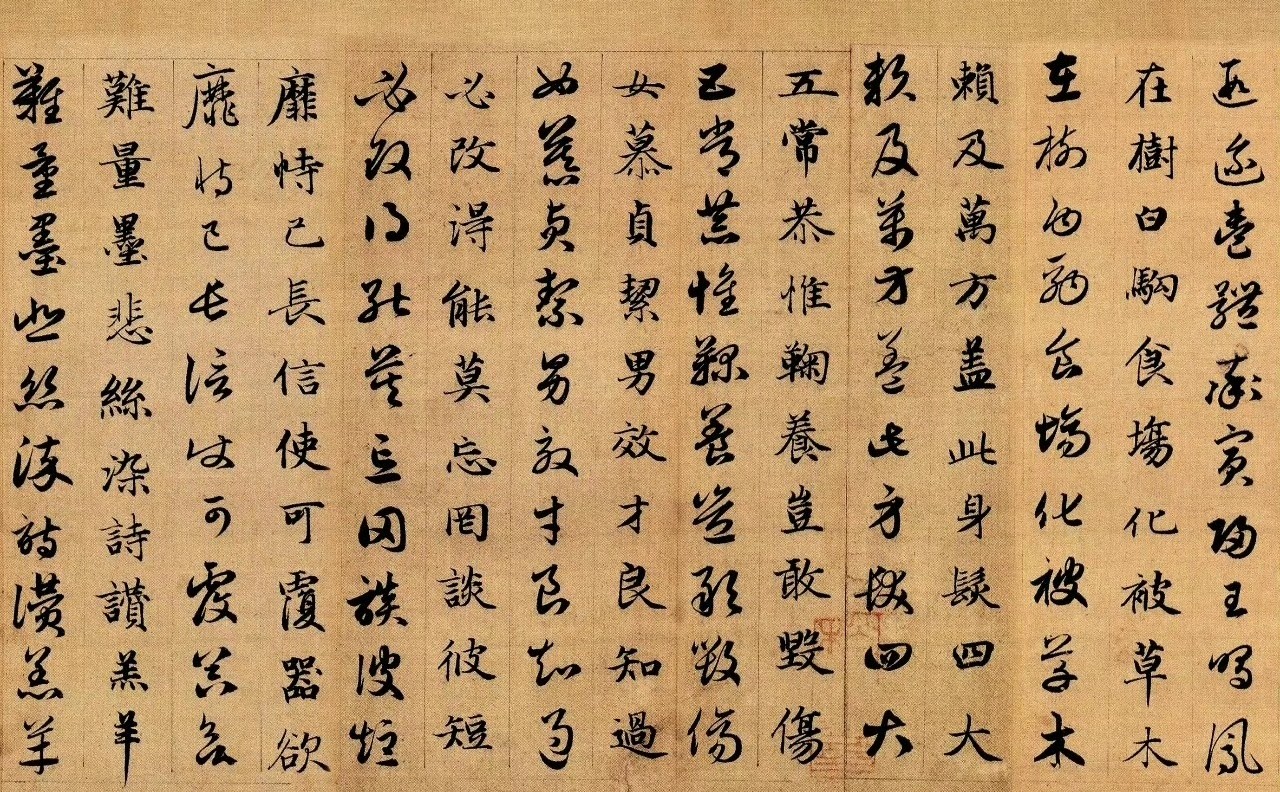 遐邇壹體率賓歸王鳴鳳
在樹白駒食場化被草木
在樹白駒食場化被草木
賴及萬方蓋此身髮四大
賴及萬方蓋此身髮四大
五常恭惟鞠養豈敢毀傷
五常恭惟鞠養豈敢毀傷
女慕貞絜男效才良知過
女慕貞絜男效才良知過
必改得能莫忘罔談彼短
必改得能莫忘罔談彼短
靡恃己長信使可覆器欲
靡恃己長信使可覆器欲
難量墨悲絲染詩讚羔羊
難量墨悲絲染詩讚羔羊